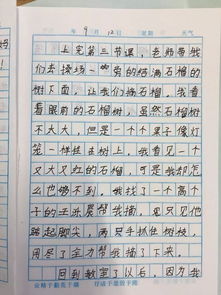 年 9月 12日 星期 天气
上完第三节课，老师带我
们去操场一旁的结满石榴的
树下面，让我们摘石榴。我看
着眼前的石榴树，虽然石榴树
不大大，但是一个个果子像灯
笼一样挂在树上。我看见一个
又大又红的石榴，可是我却怎
么也够不到。我找了一个高个
子的王乐晨帮我摘，见只见他
踮起脚尖，两只手抓住树枝，
用尽了全力帮我摘了下来。
回到教室了以后，因为我
业精于勤荒于嬉 行成于思毁于随